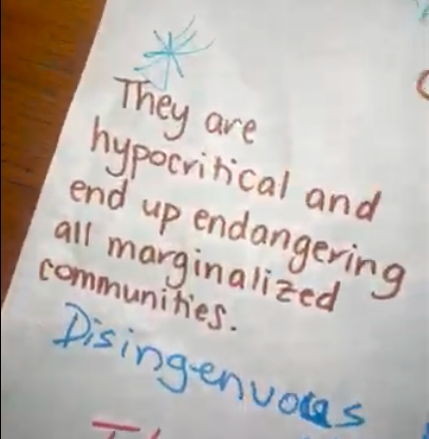 They are
hypocritical and
end up endangering
all marginalized
communities.
Disingenuous